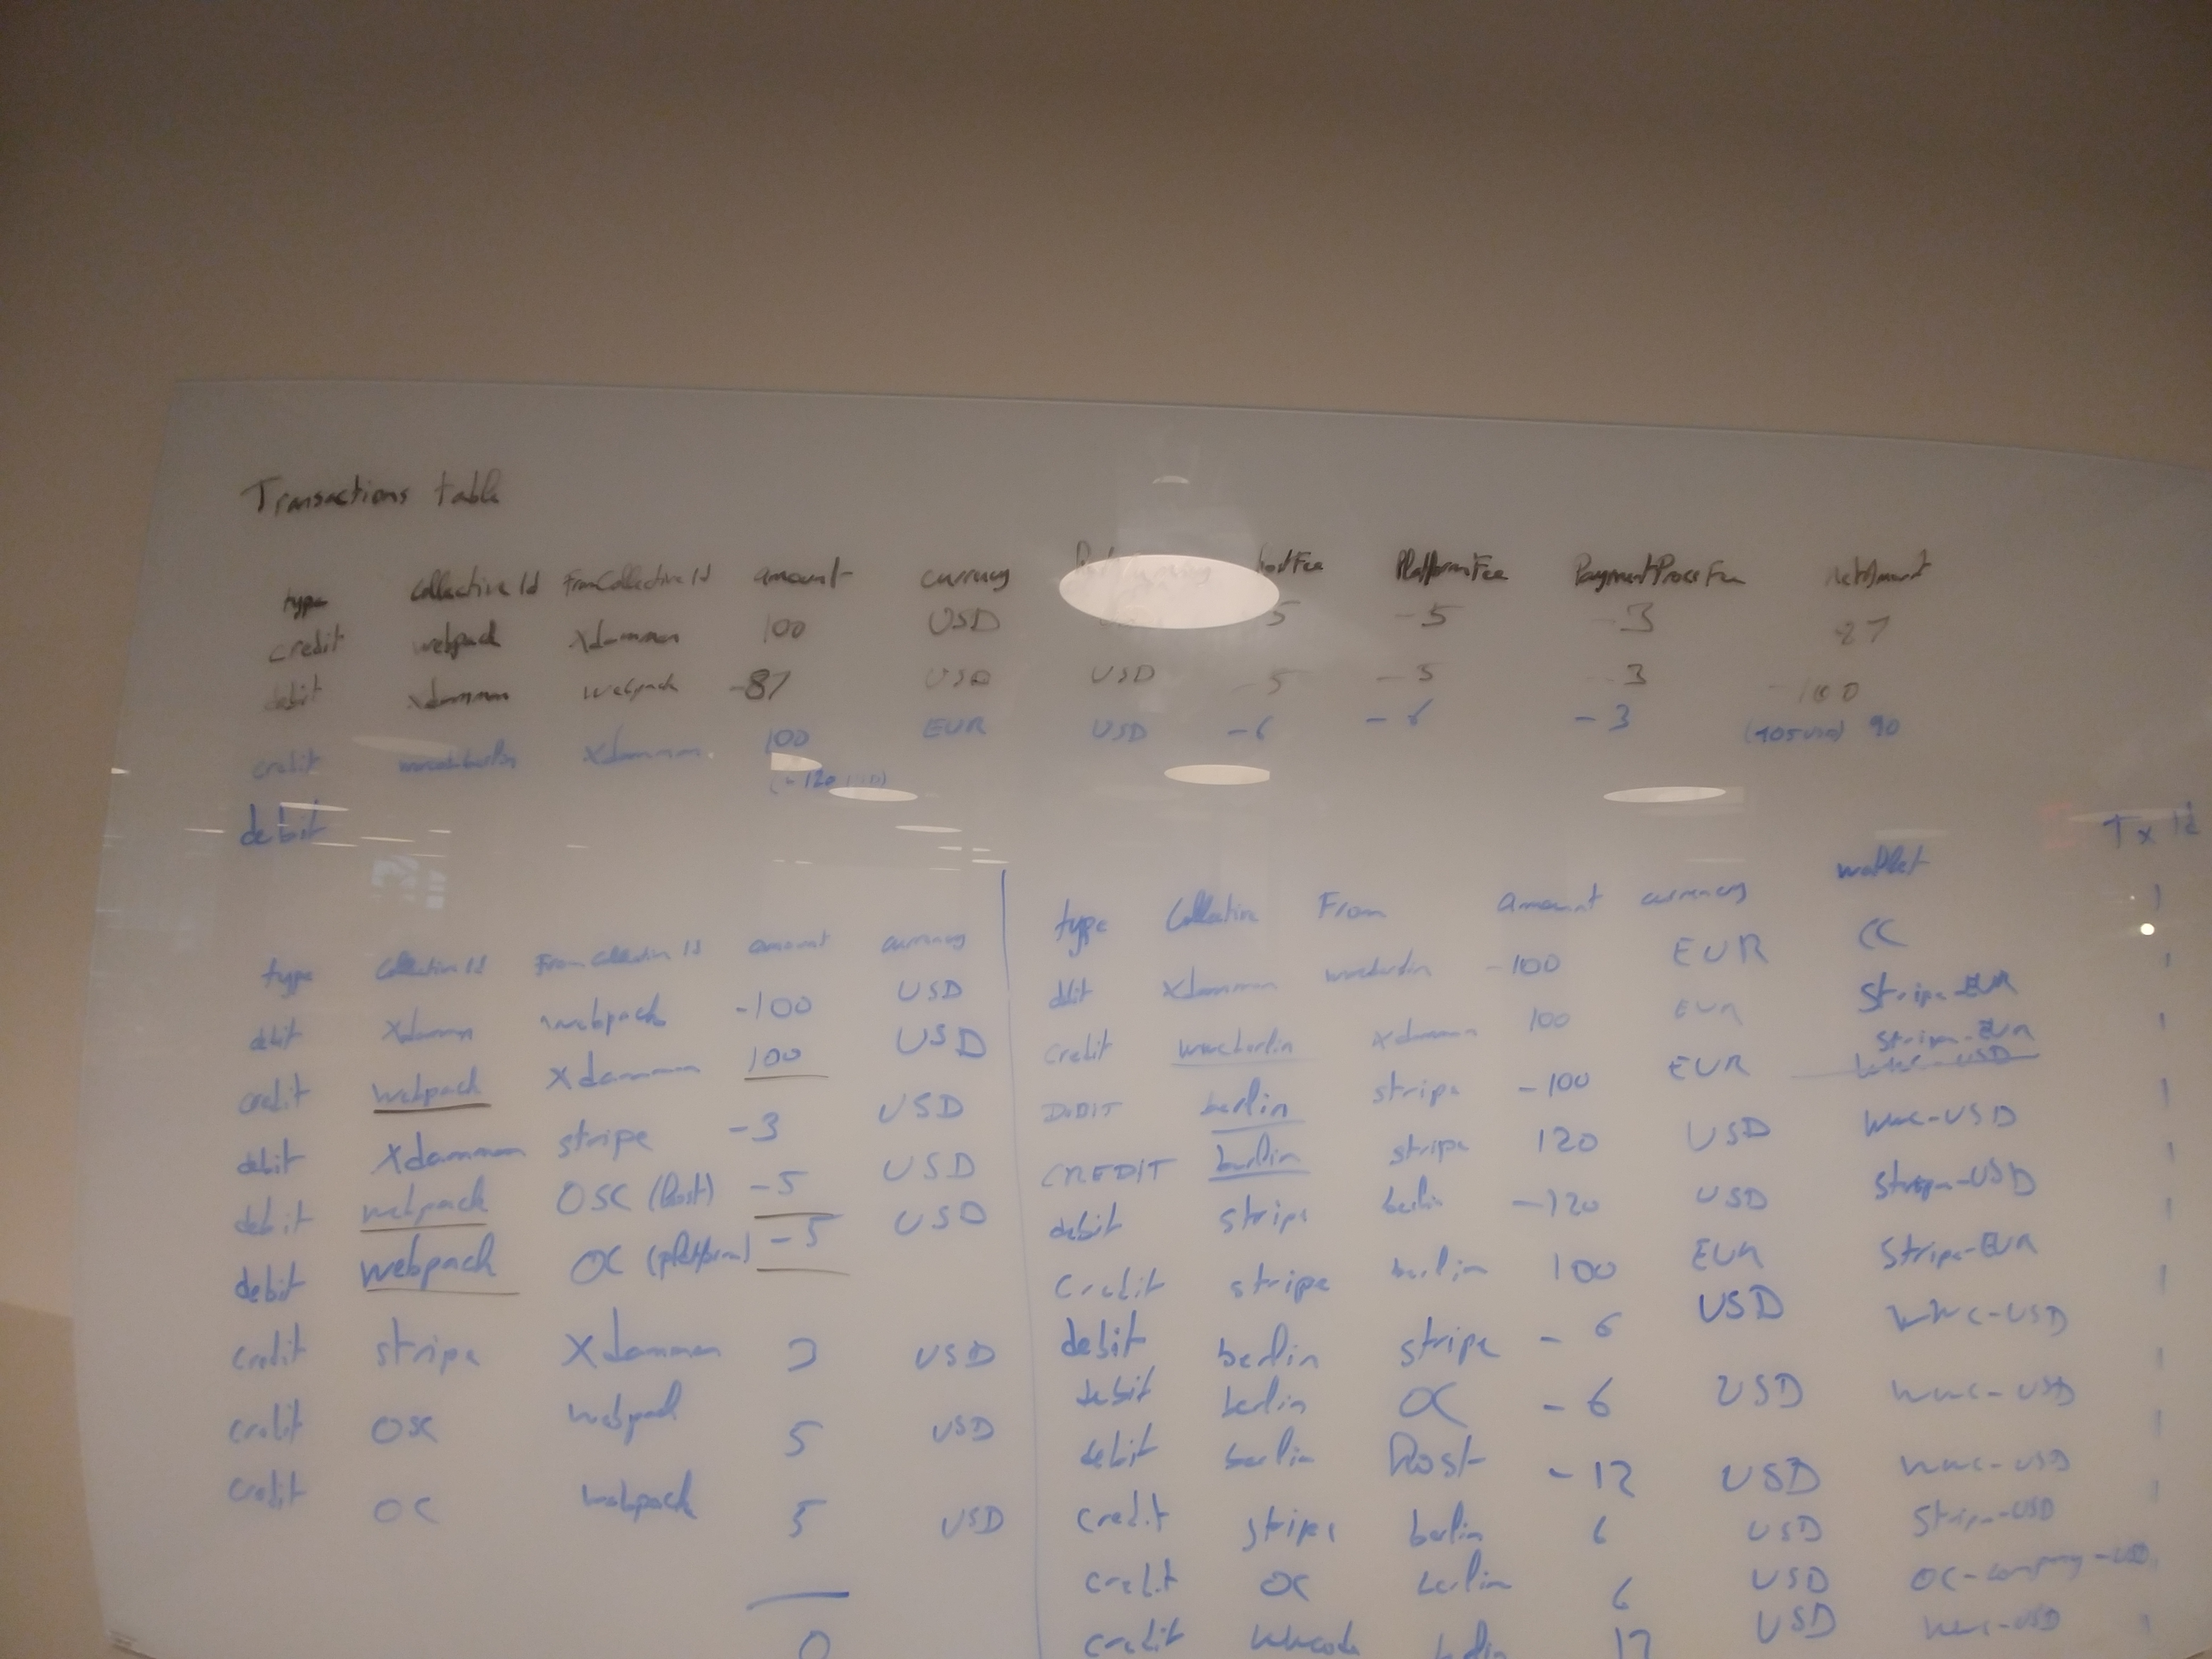 Transactions table
type CollectiveId FromCollectiveId amount currency hostFee PlatformFee PaymentProcessFee NetAmount
credit webpack xdamman 100 USD 5 -5 -3 87
debit xdamman webpack -87 USD USD -5 -5 -3 -100
credit xdamman 100 EUR USD -6 -6 -3 (105USD) 90
(~120
debit
Tx id
type CollectiveId FromCollectiveId amount currency
debit xdamman webpack -100 USD
credit webpack xdamman 100 USD
debit xdamman stripe -3 USD
debit webpack OSC (host) -5 USD
debit webpack OC (platform) -5 USD
credit stripe xdamman 3 USD
credit OSC webpack 5 USD
credit OC webpack 5 USD
0
type Collective From Amount currency wallet
debit xdamman wwcberlin -100 EUR CC 1
credit wwcberlin xdamman 100 EUR Stripe-EUR 1
DEBIT berlin stripe -100 EUR Stripe-EUR 1
CREDIT berlin stripe 120 USD wwc-USD 1
debit stripe berlin -120 USD Stripe-USD 1
Credit stripe berlin 100 EUR Stripe-EUR 1
debit berlin stripe -6 USD WWC-USD 1
debit berlin OC -6 USD wwc-USD 1
debit berlin Host -12 USD wwc-USD 1
credit stripe berlin 6 USD Stripe-USD 1
credit OC berlin 6 USD OC-company-USD 1
credit wwcode berlin 12 USD wwc-USD 1